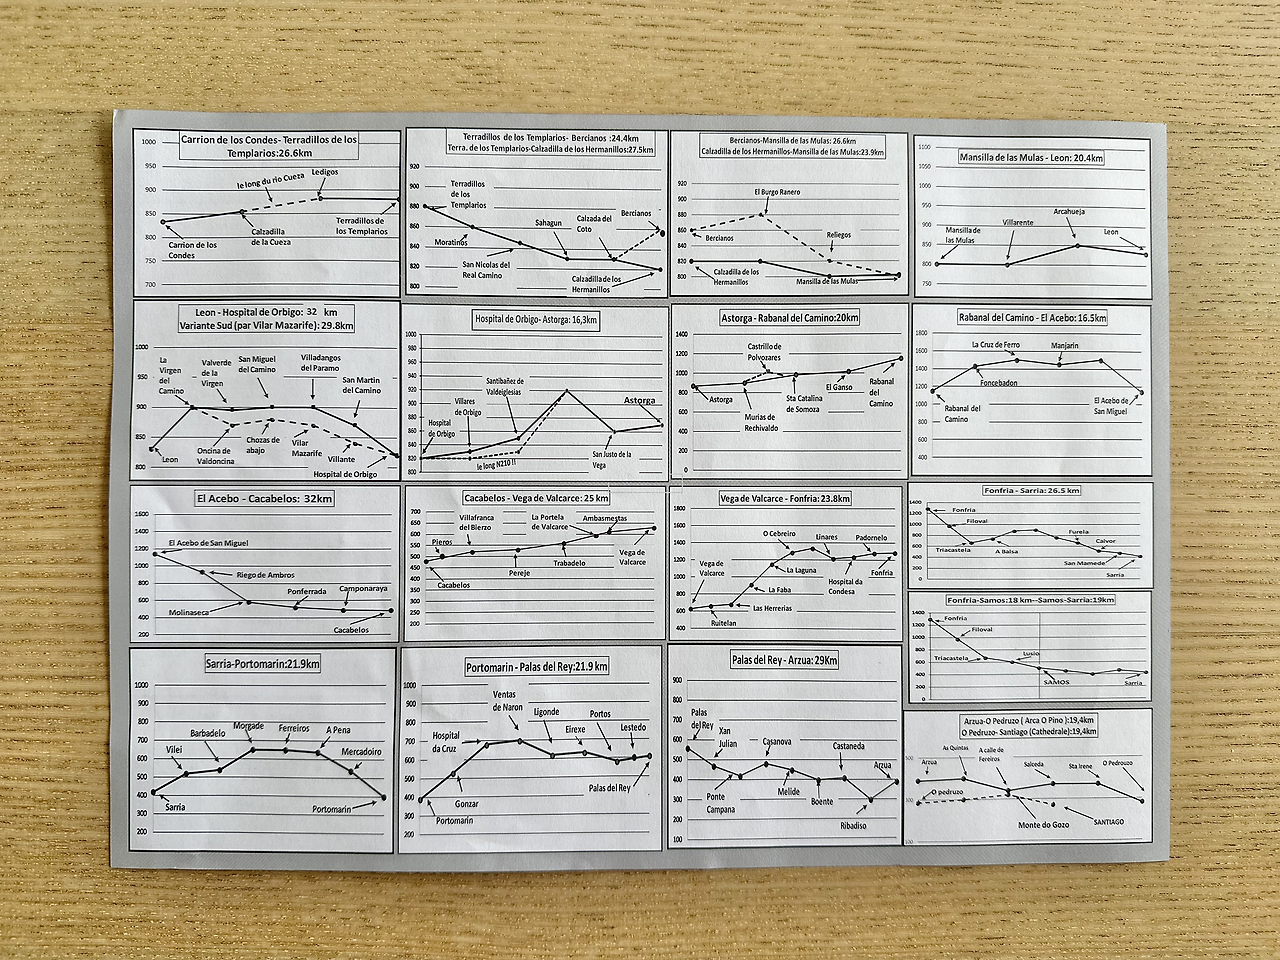 Carrion de los Condes- Terradillos de los
Templarios:26.6km
1000
950
900
850
800
750
700
le long du rio Cueza
Ledigos
Carrion de los
Condes
Calzadilla
de la Cueza
Terradillos de
los Templarios
Terradillos de los Templarios- Bercianos :24.4km
Terra. de los Templarios-Calzadilla de los Hermanillos:27.5km
920
900
880
860
840
820
800
Terradillos
de los
Templarios
Moratinos
San Nicolas del
Real Camino
Sahagun
Calzada del
Coto
Bercianos
Calzadilla de los
Hermanillos
Bercianos-Mansilla de las Mulas: 26.6km
Calzadilla de los Hermanillos-Mansilla de las Mulas:23.9km
920
900
880
860
840
820
800
El Burgo Ranero
Bercianos
Reliegos
Calzadilla de los
Hermanillos
Mansilla de las Mulas
Mansilla de las Mulas - Leon: 20.4km
1100
1050
1000
950
900
850
800
750
Mansilla de
las Mulas
Villarente
Arcahueja
Leon
Leon - Hospital de Orbigo: 32 km
Variante Sud (par Vilar Mazarife): 29.8km
1000
950
900
850
800
La
Virgen
del
Camino
Valverde
de la
Virgen
San Miguel
del Camino
Villadangos
del Paramo
San Martin
del Camino
Leon
Oncina de
Valdoncina
Chozas de
abajo
Vilar
Mazarife
Villante
Hospital de Orbigo
Hospital de Orbigo- Astorga: 16,3km
1000
980
960
940
920
900
880
860
840
820
800
Hospital
de Orbigo
Villares
de Orbigo
Santibañez de
Valdeiglesias
le long N210 !!
San Justo de la
Vega
Astorga
Astorga - Rabanal del Camino:20km
1400
1200
1000
800
600
400
200
0
Castrillo de
Polvozares
Astorga
Murias de
Rechivaldo
Sta Catalina
de Somoza
El Ganso
Rabanal
del
Camino
Rabanal del Camino - El Acebo: 16.5km
1800
1600
1400
1200
1000
800
600
400
La Cruz de Ferro
Manjarin
Foncebadon
Rabanal del
Camino
El Acebo de
San Miguel
El Acebo - Cacabelos: 32km
1600
1400
1200
1000
800
600
400
200
El Acebo de San Miguel
Riego de Ambros
Molinaseca
Ponferrada
Camponaraya
Cacabelos
Cacabelos - Vega de Valcarce: 25 km
700
650
600
550
500
450
400
350
300
250
200
Pieros
Villafranca
del Bierzo
La Portela
de Valcarce
Ambasmestas
Cacabelos
Pereje
Trabadelo
Vega de
Valcarce
Vega de Valcarce - Fonfria: 23.8km
1800
1600
1400
1200
1000
800
600
400
Vega de
Valcarce
O Cebreiro
Linares
Padornelo
La Laguna
La Faba
Las Herrerias
Ruitelan
Hospital da
Condesa
Fonfria
Fonfria - Sarria: 26.5 km
1400
1200
1000
800
600
400
200
0
Fonfria
Filoval
Triacastela
A Balsa
Furela
Calvor
San Mamede
Sarria
Fonfria-Samos:18 km--Samos-Sarria:19km
1400
1200
1000
800
600
400
200
0
Fonfria
Filoval
Triacastela
Lusio
SAMOS
Sarria
Sarria-Portomarin:21.9km
1000
900
800
700
600
500
400
300
200
Vilei
Barbadelo
Morgade
Ferreiros
A Pena
Mercadoiro
Sarria
Portomarin
Portomarin - Palas del Rey:21.9 km
1000
900
800
700
600
500
400
300
200
Hospital
da Cruz
Ventas
de Naron
Ligonde
Eirexe
Portos
Lestedo
Gonzar
Portomarin
Palas del Rey
Palas del Rey - Arzua: 29Km
900
800
700
600
500
400
300
200
100
Palas
del Rey
Xan
Julian
Casanova
Castaneda
Arzua
Ponte
Campana
Melide
Boente
Ribadiso
Arzua-O Pedruzo ( Arca O Pino ):19,4km
O Pedruzo- Santiago (Cathedrale):19,4km
500
300
100
Arzua
As Quintas
A calle de
Ferreiros
Salceda
Sta Irene
O Pedrouzo
O pedruzo
Monte do Gozo
SANTIAGO